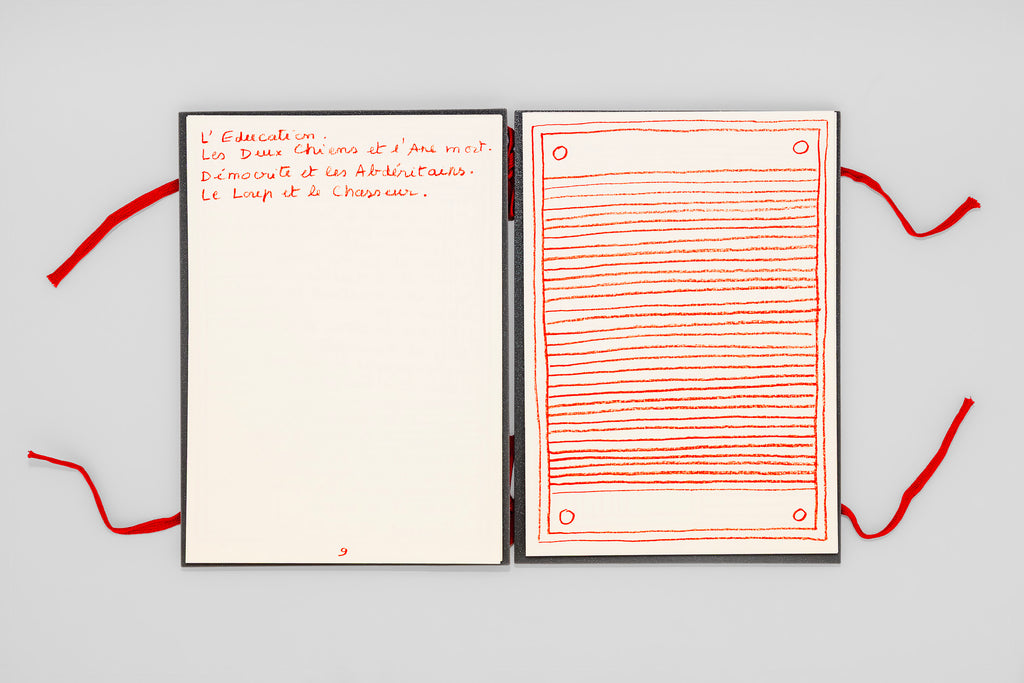 L' Education.
Les Deux Chiens et l'Ane mort.
Démocrite et les Abdéritains.
Le Loup et le Chasseur.
9